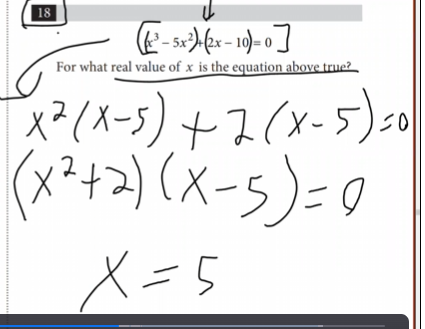 18
(x³ – 5x²)+(2x – 10)= 0]
For what real value of x is the equation above true?
x²(x-5)+2(x-5)=0
(x²+2)(x-5)=0
x=5